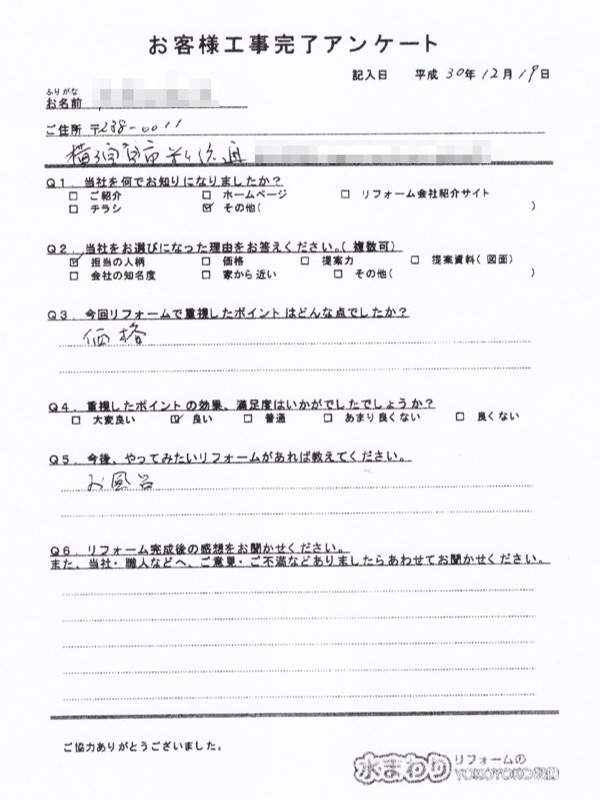 お客様工事完了アンケート
記入日 平成 30年 12月 19日
ふりがな
お名前
ご住所 〒238-0011
横須賀市米が浜通
Q1. 当社を何でお知りになりましたか?
□ ご紹介 □ ホームページ □ リフォーム会社紹介サイト
□ チラシ ☑ その他( )
Q2. 当社をお選びになった理由をお答えください。(複数可)
☑ 担当の人柄 □ 価格 □ 提案力 □ 提案資料(図面)
□ 会社の知名度 □ 家から近い □ その他( )
Q3. 今回リフォームで重視したポイントはどんな点でしたか?
価格
Q4. 重視したポイントの効果、満足度はいかがでしたでしょうか?
□ 大変良い ☑ 良い □ 普通 □ あまり良くない □ 良くない
Q5. 今後、やってみたいリフォームがあれば教えてください。
お風呂
Q6. リフォーム完成後の感想をお聞かせください。
また、当社・職人などへ、ご意見・ご不満などありましたらあわせてお聞かせください。
ご協力ありがとうございました。
水まわり リフォームの
YOKOYOKO設備